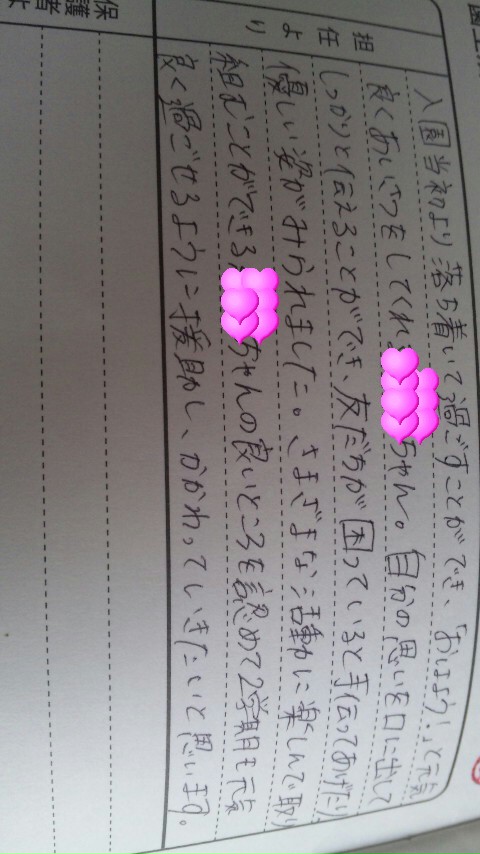 担任より
入園当初より落ち着いて過ごすことができ、「おはよう!」と元気
良くあいさつをしてくれ ちゃん。自分の思いを口に出して
しっかりと伝えることができ、友だちが困っていると手伝ってあげたり
優しい姿がみられました。さまざまな活動に楽しんで取り
組むことができる ちゃんの良いところを認めて2学期も元気
良く過ごせるように援助し、かかわっていきたいと思います。
保護者よ